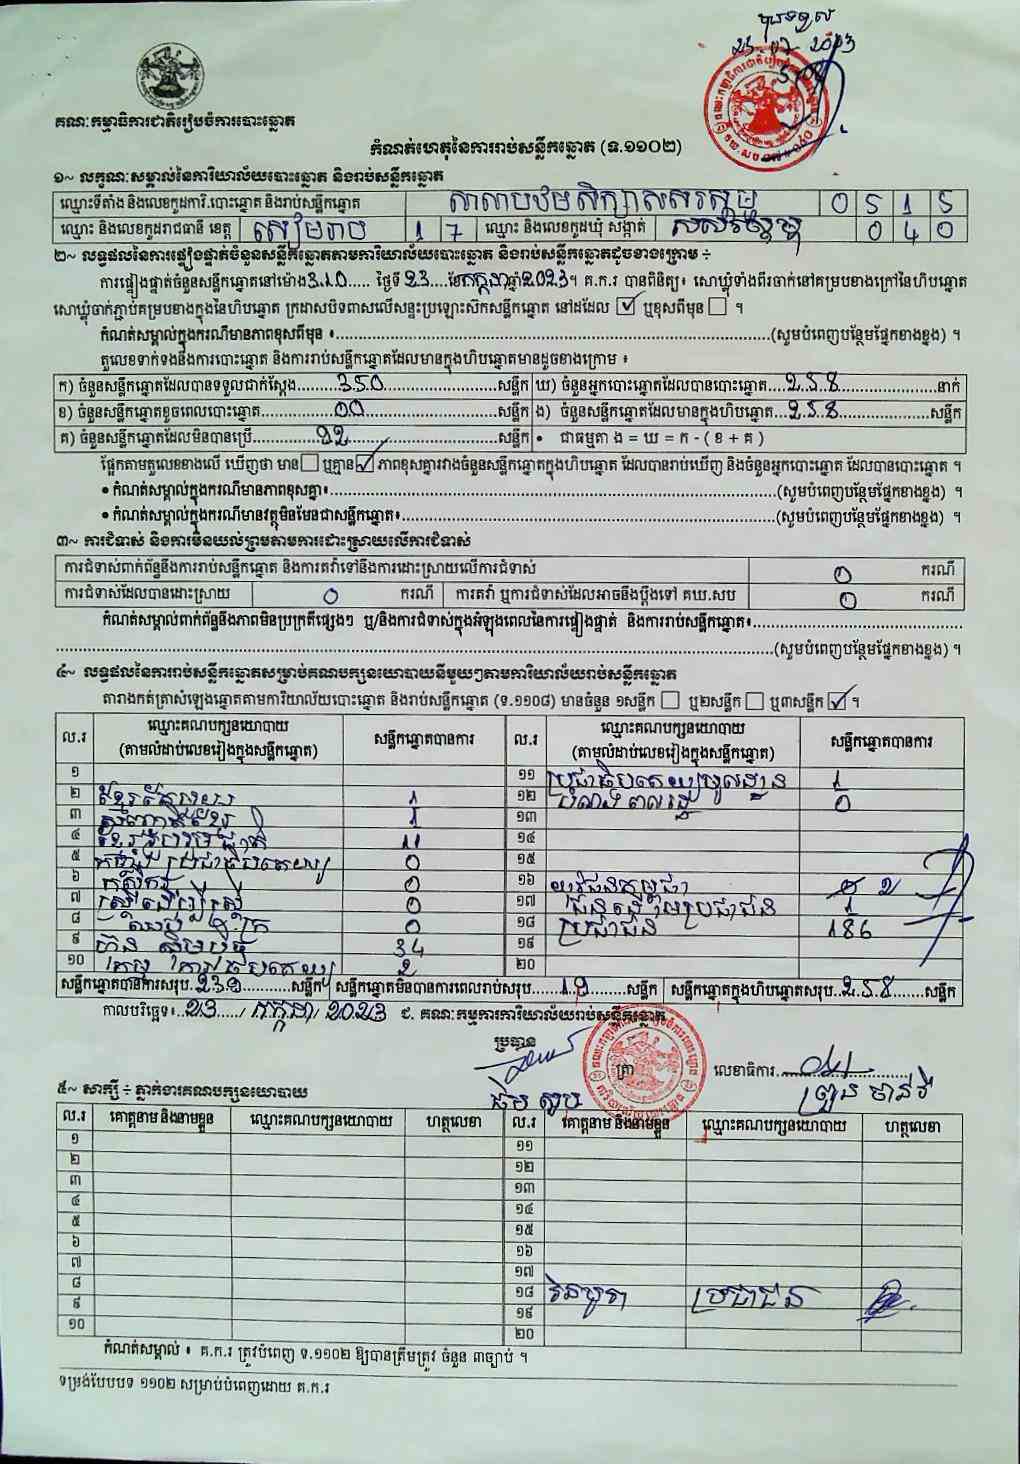 23 07 2023
គណៈកម្មាធិការជាតិរៀបចំការបោះឆ្នោត
កំណត់ហេតុនៃការរាប់សន្លឹកឆ្នោត (ទ.១១០២)
១~ លក្ខណៈសម្គាល់នៃការិយាល័យបោះឆ្នោត និងរាប់សន្លឹកឆ្នោត
ឈ្មោះទីតាំង និងលេខកូដការិ.បោះឆ្នោត និងរាប់សន្លឹកឆ្នោត សាលាបឋមសិក្សាសសរស្តម្ភ 0 5 1 5
ឈ្មោះ និងលេខកូដរាជធានី ខេត្ត សៀមរាប 1 7 ឈ្មោះ និងលេខកូដឃុំ សង្កាត់ សសរស្តម្ភ 0 4 0
២~ លទ្ធផលនៃការផ្ទៀងផ្ទាត់ចំនួនសន្លឹកឆ្នោតតាមការិយាល័យបោះឆ្នោត និងរាប់សន្លឹកឆ្នោតដូចខាងក្រោម ÷
ការផ្ទៀងផ្ទាត់ចំនួនសន្លឹកឆ្នោតនៅម៉ោង 3:10 ..... ថ្ងៃទី 23 ....ខែ កក្កដា ឆ្នាំ 2023។ គ.ក.រ បានពិនិត្យ៖ សោឃ្លុំទាំងពីរចាក់នៅគម្របខាងក្រៅនៃហិបឆ្នោត
សោឃ្លុំចាក់ភ្ជាប់គម្របខាងក្នុងនៃហិបឆ្នោត ក្រដាសបិទពាសលើសន្ទះប្រឡោះស៊កសន្លឹកឆ្នោត នៅដដែល ☑ ឬខុសពីមុន ☐ ។
កំណត់សម្គាល់ក្នុងករណីមានភាពខុសពីមុន ៖ ...........(សូមបំពេញបន្ថែមផ្នែកខាងខ្នង) ។
តួលេខទាក់ទងនឹងការបោះឆ្នោត និងការរាប់សន្លឹកឆ្នោតដែលមានក្នុងហិបឆ្នោតមានដូចខាងក្រោម ៖
ក) ចំនួនសន្លឹកឆ្នោតដែលបានទទួលជាក់ស្តែង........350...........សន្លឹក ឃ) ចំនួនអ្នកបោះឆ្នោតដែលបានបោះឆ្នោត....258...........នាក់
ខ) ចំនួនសន្លឹកឆ្នោតខូចពេលបោះឆ្នោត...........00...........សន្លឹក ង) ចំនួនសន្លឹកឆ្នោតដែលមានក្នុងហិបឆ្នោត...258...........សន្លឹក
គ) ចំនួនសន្លឹកឆ្នោតដែលមិនបានប្រើ...........92...........សន្លឹក • ជាធម្មតា ង = ឃ = ក - ( ខ + គ )
ផ្អែកតាមតួលេខខាងលើ ឃើញថា មាន ☐ ឬគ្មាន ☑ ភាពខុសគ្នារវាងចំនួនសន្លឹកឆ្នោតក្នុងហិបឆ្នោត ដែលបានរាប់ឃើញ និងចំនួនអ្នកបោះឆ្នោត ដែលបានបោះឆ្នោត ។
• កំណត់សម្គាល់ក្នុងករណីមានភាពខុសគ្នា៖...........(សូមបំពេញបន្ថែមផ្នែកខាងខ្នង) ។
• កំណត់សម្គាល់ក្នុងករណីមានវត្ថុមិនមែនជាសន្លឹកឆ្នោត៖...........(សូមបំពេញបន្ថែមផ្នែកខាងខ្នង) ។
៣~ ការជំទាស់ និងការមិនយល់ព្រមតាមការដោះស្រាយលើការជំទាស់
ការជំទាស់ពាក់ព័ន្ធនឹងការរាប់សន្លឹកឆ្នោត និងការតវ៉ាទៅនឹងការដោះស្រាយលើការជំទាស់ 0 ករណី
ការជំទាស់ដែលបានដោះស្រាយ 0 ករណី ការតវ៉ា ឬការជំទាស់ដែលអាចនឹងប្តឹងទៅ គឃ.សប 0 ករណី
កំណត់សម្គាល់ពាក់ព័ន្ធនឹងភាពមិនប្រក្រតីផ្សេងៗ ឬ/និងការជំទាស់ក្នុងអំឡុងពេលនៃការផ្ទៀងផ្ទាត់ និងការរាប់សន្លឹកឆ្នោត៖...........
...........(សូមបំពេញបន្ថែមផ្នែកខាងខ្នង) ។
៤~ លទ្ធផលនៃការរាប់សន្លឹកឆ្នោតសម្រាប់គណបក្សនយោបាយនីមួយៗតាមការិយាល័យរាប់សន្លឹកឆ្នោត
តារាងកត់ត្រាសំឡេងឆ្នោតតាមការិយាល័យបោះឆ្នោត និងរាប់សន្លឹកឆ្នោត (ទ.១១០៨) មានចំនួន ១សន្លឹក ☐ ឬ២សន្លឹក ☐ ឬ៣សន្លឹក ☑ ។
ល.រ ឈ្មោះគណបក្សនយោបាយ (តាមលំដាប់លេខរៀងក្នុងសន្លឹកឆ្នោត) សន្លឹកឆ្នោតបានការ ល.រ ឈ្មោះគណបក្សនយោបាយ (តាមលំដាប់លេខរៀងក្នុងសន្លឹកឆ្នោត) សន្លឹកឆ្នោតបានការ
១ ១១ ប្រជាធិបតេយ្យមូលដ្ឋាន 1
២ 1 ១២ 0
៣ 1 ១៣
៤ 11 ១៤
៥ 0 ១៥
៦ កសិករ 0 ១៦ យុវជនកម្ពុជា 2
៧ ស្រ្តីដើម្បីស្ត្រី 0 ១៧ 1
៨ 0 ១៨ ប្រជាជន 186
៩ ហ៊្វុនស៊ិនប៉ិច 34 ១៩
១០ 2 ២០
សន្លឹកឆ្នោតបានការសរុប..239...........សន្លឹក សន្លឹកឆ្នោតមិនបានការពេលរាប់សរុប......19........សន្លឹក សន្លឹកឆ្នោតក្នុងហិបឆ្នោតសរុប..258.......សន្លឹក
កាលបរិច្ឆេទ៖..23...../ កក្កដា / 2023 ជ. គណៈកម្មការការិយាល័យរាប់សន្លឹកឆ្នោត
ប្រធាន
ត្រា លេខាធិការ...........
៥~ សាក្សី ÷ ភ្នាក់ងារគណបក្សនយោបាយ
ល.រ គោត្តនាម និងនាមខ្លួន ឈ្មោះគណបក្សនយោបាយ ហត្ថលេខា ល.រ គោត្តនាម និងនាមខ្លួន ឈ្មោះគណបក្សនយោបាយ ហត្ថលេខា
១ ១១
២ ១២
៣ ១៣
៤ ១៤
៥ ១៥
៦ ១៦
៧ ១៧
៨ ១៨ ប្រជាជន
៩ ១៩
១០ ២០
កំណត់សម្គាល់ ៖ គ.ក.រ ត្រូវបំពេញ ទ.១១០២ ឱ្យបានត្រឹមត្រូវ ចំនួន ៣ច្បាប់ ។
ទម្រង់បែបបទ ១១០២ សម្រាប់បំពេញដោយ គ.ក.រ